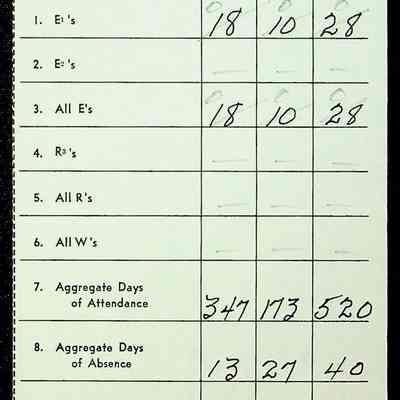 1. E¹'s 18 10 28
2. E²'s — — —
3. All E's 18 10 28
4. R³'s — — —
5. All R's — — —
6. All W's — — —
7. Aggregate Days
of Attendance 347 173 520
8. Aggregate Days
of Absence 13 27 40